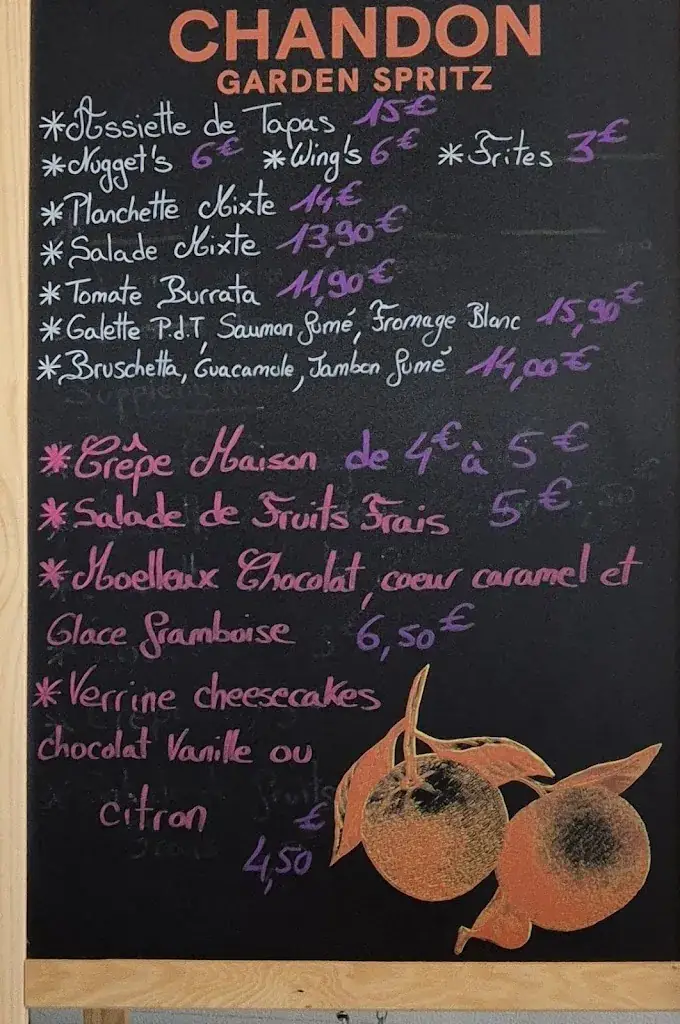 CHANDON
GARDEN SPRITZ
*Assiette de Tapas 15€
*Nugget's 6€ *Wing's 6€ *Frites 3€
*Planchette Mixte 14€
*Salade Mixte 13,90€
*Tomate Burrata 11,90€
*Galette P.d.T, Saumon fumé, Fromage Blanc 15,90€
*Bruschetta, Guacamole, Jambon fumé 14,00€
*Crêpe Maison de 4€ à 5€
*Salade de Fruits Frais 5€
*Moelleux Chocolat, coeur caramel et
Glace framboise 6,50€
*Verrine cheesecakes
chocolat Vanille ou
citron €
4,50